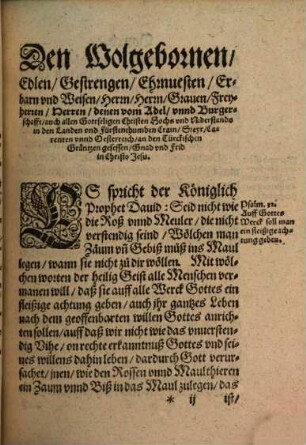 Den Wolgebornen/
Edlen/ Gestrengen/ Ehrnuesten/ Er-
barn vnd Weisen/ Herrn/ Herrn/ Grauen/ Frey-
herrn/ Herren/ denen vom Adel/ vnd Burger-
schafft/ auch allen Gottseligen Christen Hoch vnd Niderstands
in den Landen vnd Fürstenthumben Crain/ Steyr/ Ca-
renten vnnd Oesterreich/ an den Türckischen
Gräntzen gesessen/ Gnad vnd Frid
in Christo Jesu.
ES spricht der Königlich
Prophet Dauid: Seid nicht wie
die Roß vnnd Meuler/ die nicht
verstendig seind/ Wölchen man
Zaum vñ Gebiß müß ins Maul
legen/ wann sie nicht zů dir wöllen. Mit wöl-
chen worten der heilig Geist alle Menschen ver-
manen will/ daß sie auff alle Werck Gottes ein
fleißige achtung geben/ auch jhr gantzes Leben
nach dem geoffenbarten willen Gottes anrich-
ten sollen/ auff daß wir nicht wie das vnuersten-
dig Vihe/ on rechte erkanntnuß Gottes vnd sei-
nes willens dahin leben/ dardurch Gott verur-
sachet/ jnen/ wie den Rossen vnnd Maulthieren
ein Zaum vnnd Biß in das Maul zulegen/ das
* ij ist/
Psalm. 32.
Auff Gottes
Werck soll man
ein fleißige ach-
tung geben.